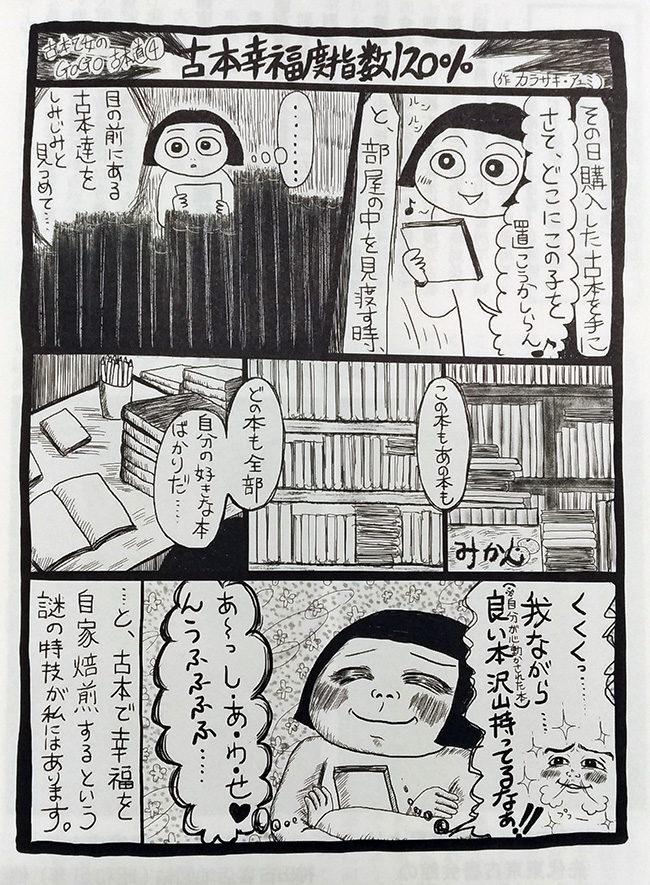 古本乙女の
GoGo古本道④
古本幸福度指数120%
(作 カラサキ・アユミ)
その日購入した古本を手に
さて、どこにこの子を
置こうかしらん♪
ルンルン
♪〜
と、部屋の中を見渡す時、
………
目の前にある
古本達を
しみじみと
見つめて…
この本もあの本も
みかん
どの本も全部
自分の好きな本
ばかりだ……
くくくっ……
我ながら……
(※自分が心動かされた本)
良い本沢山持ってるなあ!!
あ〜っし・あ・わ・せ♥
んうふふふふ……
…と、古本で幸福を
自家焙煎するという
謎の特技が私にはあります。